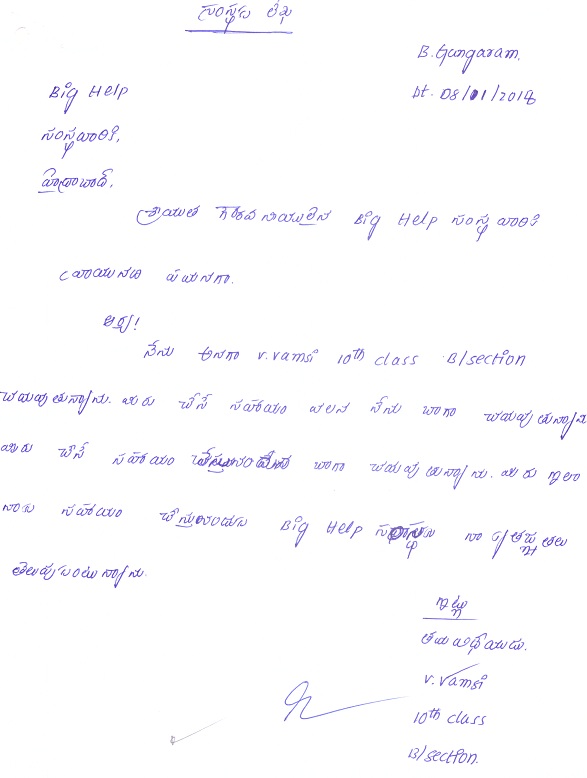 సంస్థకు లేఖ
B. Gangaram.
Dt. 08/01/2018
Big Help
సంస్థ వారికి,
హైద్రాబాద్.
శ్రీయుత గౌరవ నీయులైన Big Help సంస్థ వారికి
వ్రాయునది ఏమనగా.
ఆర్య!
నేను అనగా V. Vamsi 10th class B/section
చదువుతున్నాను. మీరు చేసే సహాయం వలన నేను బాగా చదువుతున్నాను
మీరు చేసే సహాయం బాగా చదువుతున్నాను. మీరు ఇలా
నాకు సహాయం చేస్తున్నందుకు Big Help నా కృతజ్ఞతలు
తెలుపుకుంటున్నాను.
ఇట్లు
తమ విధేయుడు.
V. Vamsi
10th class
B/section.